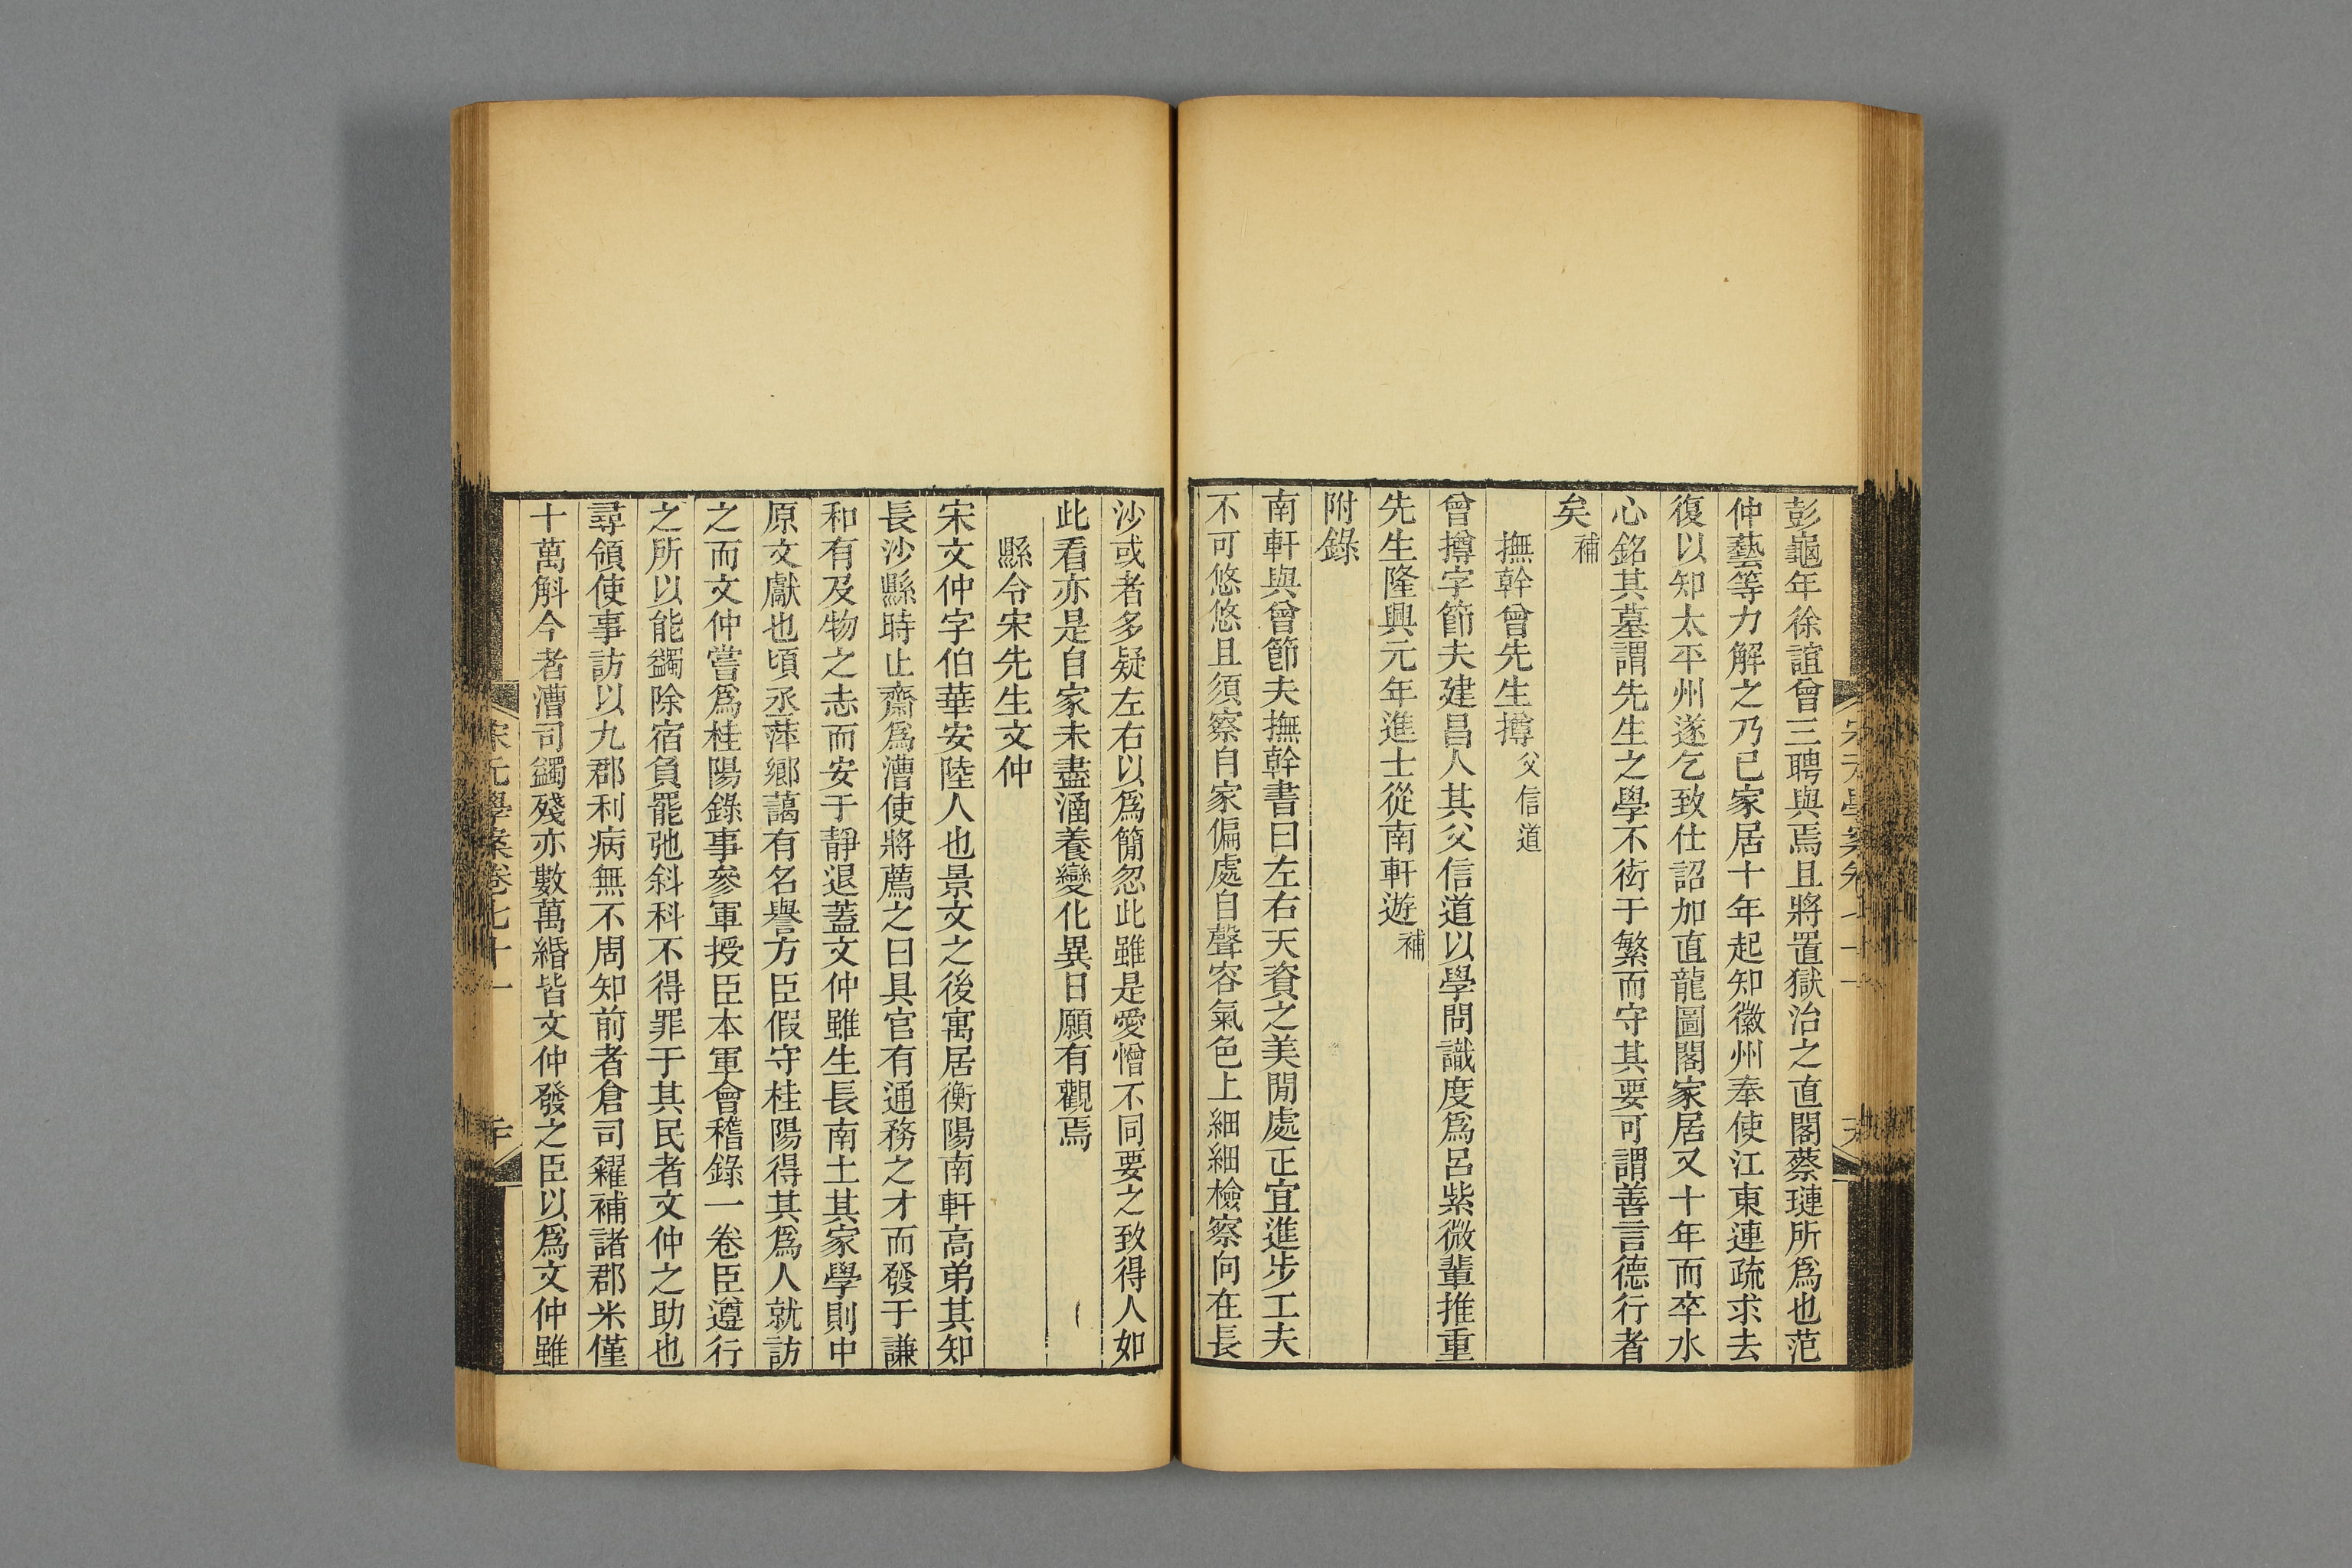 彭龜年徐誼曾三聘與焉且將置獄治之直閣蔡璉所爲也范
仲藝等力解之乃已家居十年起知徽州奉使江東連疏求去
復以知太平州遂乞致仕詔加直龍圖閣家居又十年而卒水
心銘其墓謂先生之學不衒于繁而守其要可謂善言德行者
矣補
撫幹曾先生撙父信道
曾撙字節夫建昌人其父信道以學問識度爲呂紫微輩推重
先生隆興元年進士從南軒遊補
附錄
南軒與曾節夫撫幹書曰左右天資之美閒處正宜進步工夫
不可悠悠且須察自家偏處自聲容氣色上細細檢察向在長
沙或者多疑左右以爲簡忽此雖是愛憎不同要之致得人如
此看亦是自家未盡涵養變化異日願有觀焉
縣令宋先生文仲
宋文仲字伯華安陸人也景文之後寓居衡陽南軒高弟其知
長沙縣時止齋爲漕使將薦之曰具官有通務之才而發于謙
和有及物之志而安于靜退蓋文仲雖生長南土其家學則中
原文獻也頃丞萍鄉藹有名譽方臣假守桂陽得其爲人就訪
之而文仲嘗爲桂陽錄事參軍授臣本軍會稽錄一卷臣遵行
之所以能蠲除宿負罷弛斜科不得罪于其民者文仲之助也
尋領使事訪以九郡利病無不周知前者倉司糴補諸郡米僅
十萬斛今者漕司蠲殘亦數萬緡皆文仲發之臣以爲文仲雖
宋元學案卷七十一